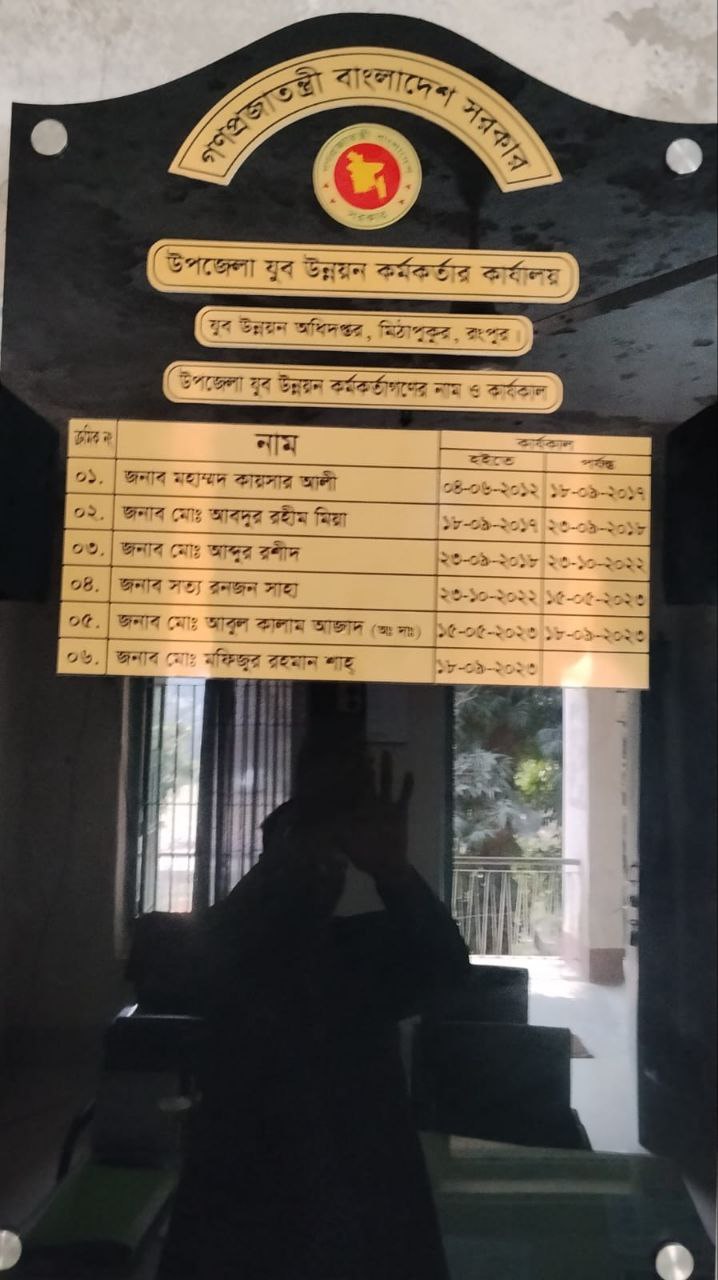 গণপ্রজাতন্ত্রী বাংলাদেশ সরকার
গণপ্রজাতন্ত্রী বাংলাদেশ
সরকার
উপজেলা যুব উন্নয়ন কর্মকর্তার কার্যালয়
যুব উন্নয়ন অধিদপ্তর, মিঠাপুকুর, রংপুর।
উপজেলা যুব উন্নয়ন কর্মকর্তাগণের নাম ও কার্যকাল
ক্রমিক নং নাম কার্যকাল
হইতে পর্যন্ত
০১. জনাব মহাম্মদ কায়সার আলী ০৪-০৬-২০১২ ১৮-০৯-২০১৭
০২. জনাব মোঃ আবদুর রহীম মিয়া ১৮-০৯-২০১৭ ২৩-০৯-২০১৮
০৩. জনাব মোঃ আব্দুর রশীদ ২৩-০৯-২০১৮ ২৩-১০-২০২২
০৪. জনাব সত্য রনজন সাহা ২৩-১০-২০২২ ১৫-০৫-২০২৩
০৫. জনাব মোঃ আবুল কালাম আজাদ (অঃ দাঃ) ১৫-০৫-২০২৩ ১৮-০৯-২০২৩
০৬. জনাব মোঃ মফিজুর রহমান শাহ্ ১৮-০৯-২০২৩